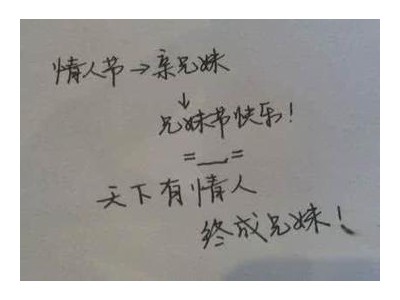 情人节→亲兄妹
↓
兄妹节快乐!
=__=
天下有情人
终成兄妹!